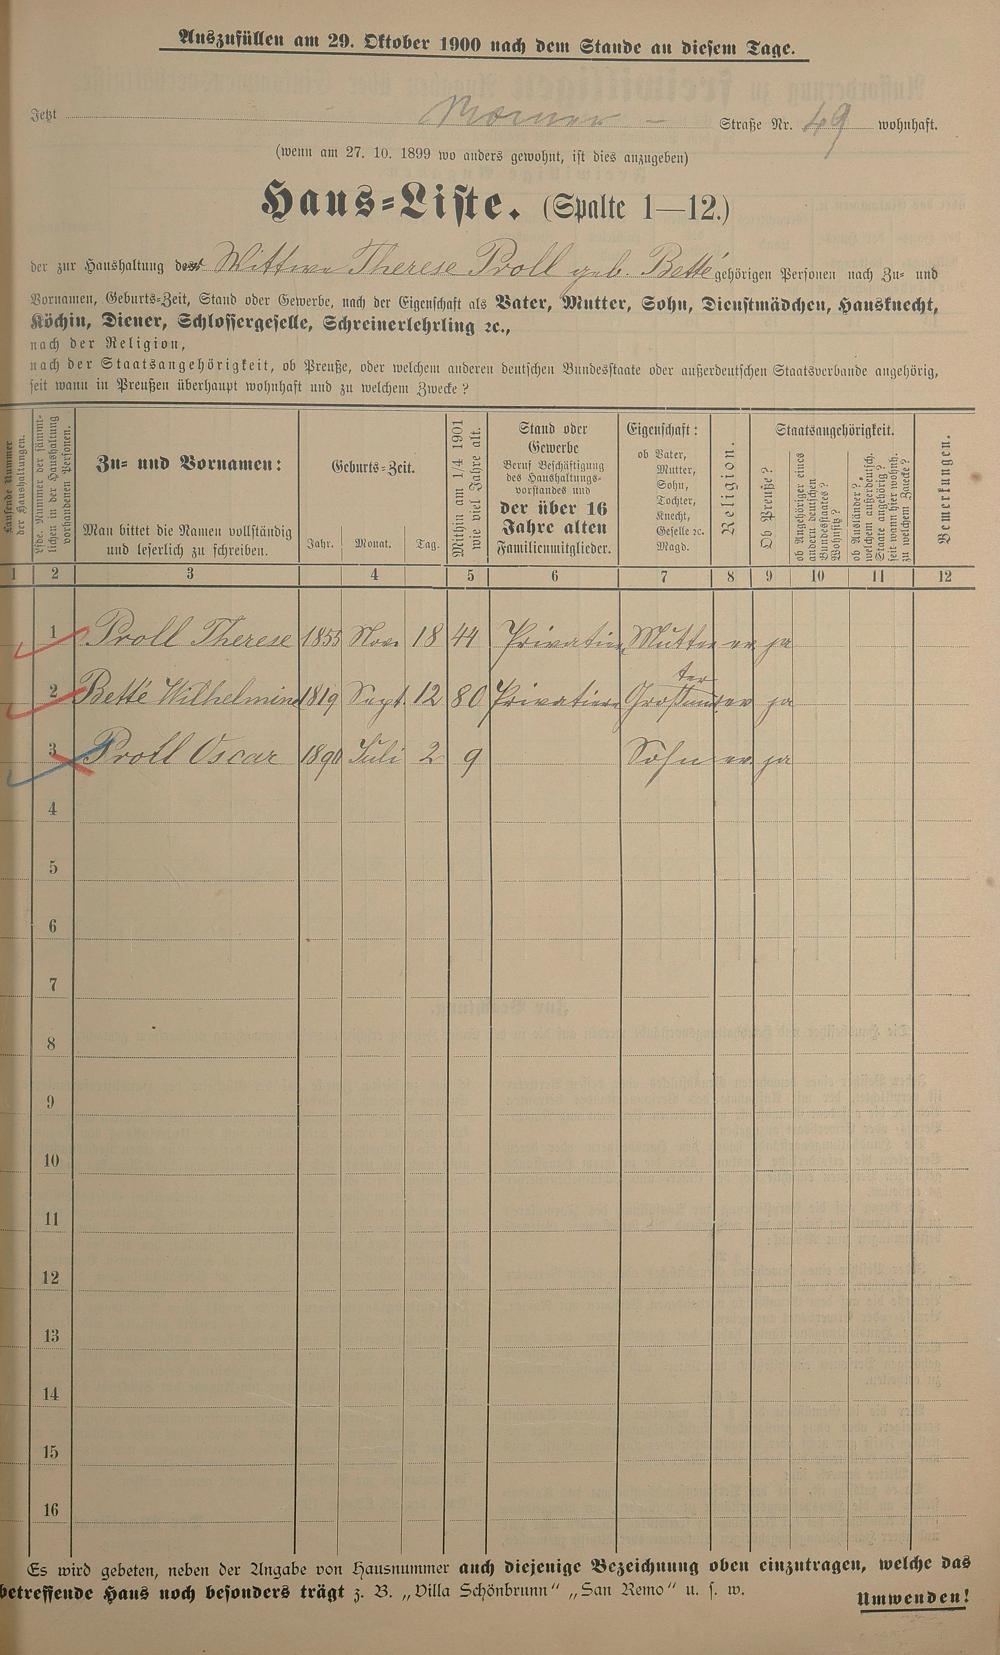 Auszufüllen am 29. Oktober 1900 nach dem Stande an diesem Tage.
Jetzt Moerner - Straße Nr. 49 wohnhaft.
(wenn am 27. 10. 1899 wo anders gewohnt, ist dies anzugeben)
Haus=Liste. (Spalte 1—12.)
der zur Haushaltung der Wittwe Therese Proll geb. Betté gehörigen Personen nach Zu- und
Vornamen, Geburts-Zeit, Stand oder Gewerbe, nach der Eigenschaft als Vater, Mutter, Sohn, Dienstmädchen, Hausknecht,
Köchin, Diener, Schlossergeselle, Schreinerlehrling ꝛc.,
nach der Religion,
nach der Staatsangehörigkeit, ob Preuße, oder welchem anderen deutschen Bundesstaate oder außerdeutschen Staatsverbande angehörig,
seit wann in Preußen überhaupt wohnhaft und zu welchem Zwecke?
Laufende Nummer
der Haushaltungen.
Lfde. Nummer der sämmt-
lichen in der Haushaltung
vorhandenen Personen.
Zu- und Vornamen:
Man bittet die Namen vollständig
und leserlich zu schreiben.
Geburts-Zeit.
Jahr. Monat. Tag.
Mithin am 1/4 1901
wie viel Jahre alt.
Stand oder
Gewerbe
Beruf Beschäftigung
des Haushaltungs-
vorstandes und
der über 16
Jahre alten
Familienmitglieder.
Eigenschaft:
ob Vater,
Mutter,
Sohn,
Tochter,
Knecht,
Geselle ꝛc.
Magd.
Religion.
Staatsangehörigkeit.
Ob Preuße?
ob Angehöriger eines
andern deutschen
Bundesstaates?
Wohnsitz?
ob Ausländer?
welchem außerdeutsch.
Staate angehörig?
seit wann hier wohnh.
zu welchem Zwecke?
Bemerkungen.
1 2 3 4 5 6 7 8 9 10 11 12
1 Proll Therese 1855 Nov. 18 44 Privatire Mutter ev ja
ter
2 Betté Wilhelmine 1819 Sept. 12 80 Privatire Großmut ev ja
3 Proll Oscar 1891 Juli 2 9 Sohn ev ja
4
5
6
7
8
9
10
11
12
13
14
15
16
Es wird gebeten, neben der Angabe von Hausnummer auch diejenige Bezeichnung oben einzutragen, welche das
betreffende Haus noch besonders trägt z. B. „Villa Schönbrunn“ „San Remo“ u. s. w.
Umwenden!